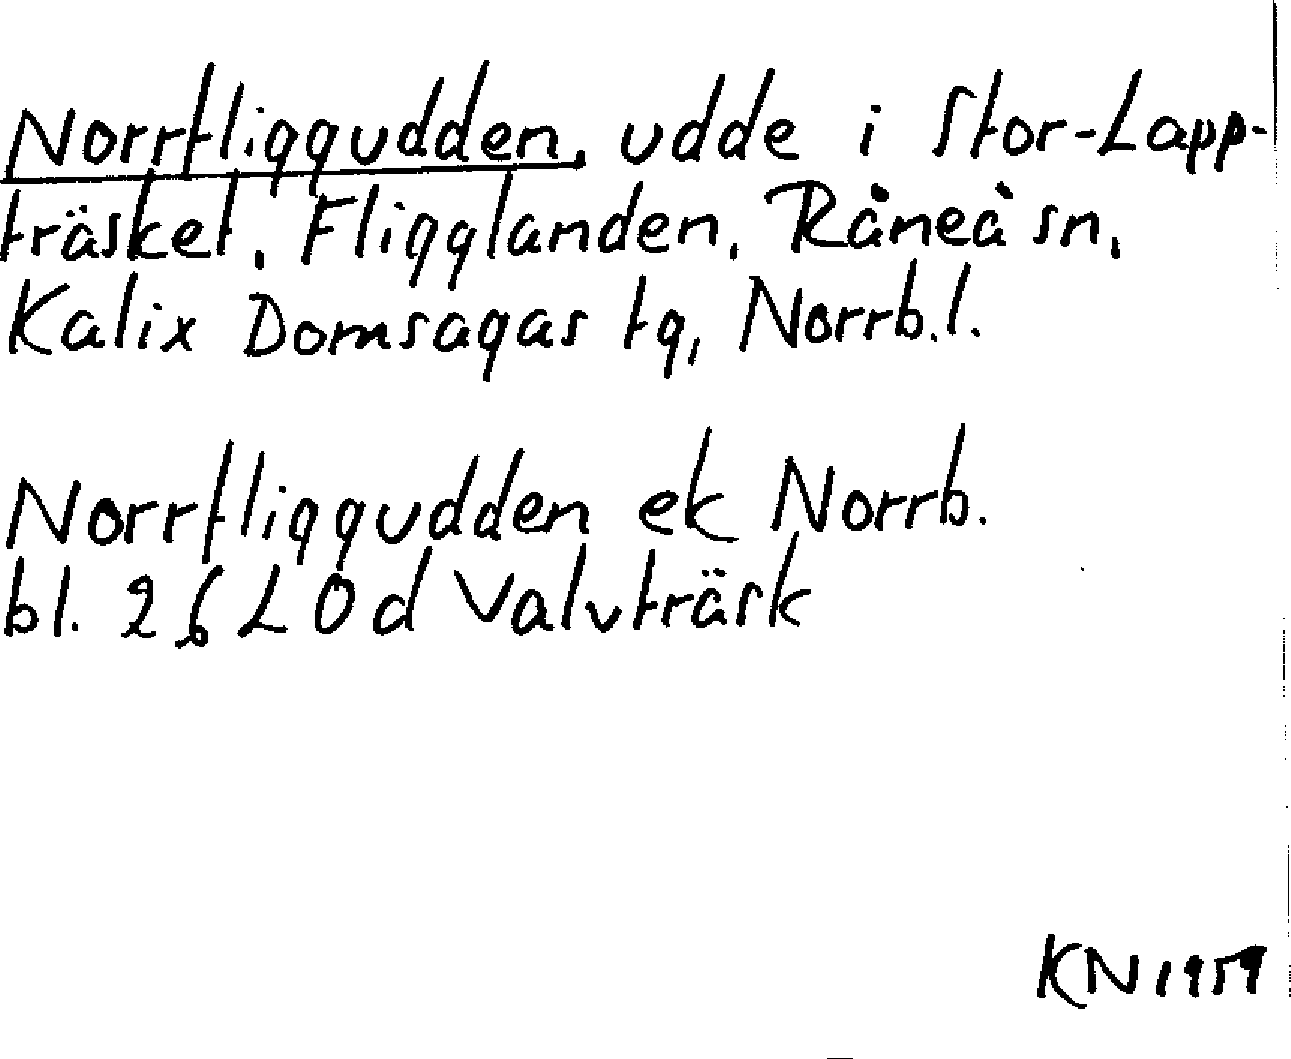 Norrfliggudden, udde i Stor-Lapp-
träsket, Fligglanden, Råneå sn,
Kalix Domsagas tg, Norrb.l.
Norrfliggudden ek Norrb.
bl. 26 L 0 d Valvträsk
KN 1959